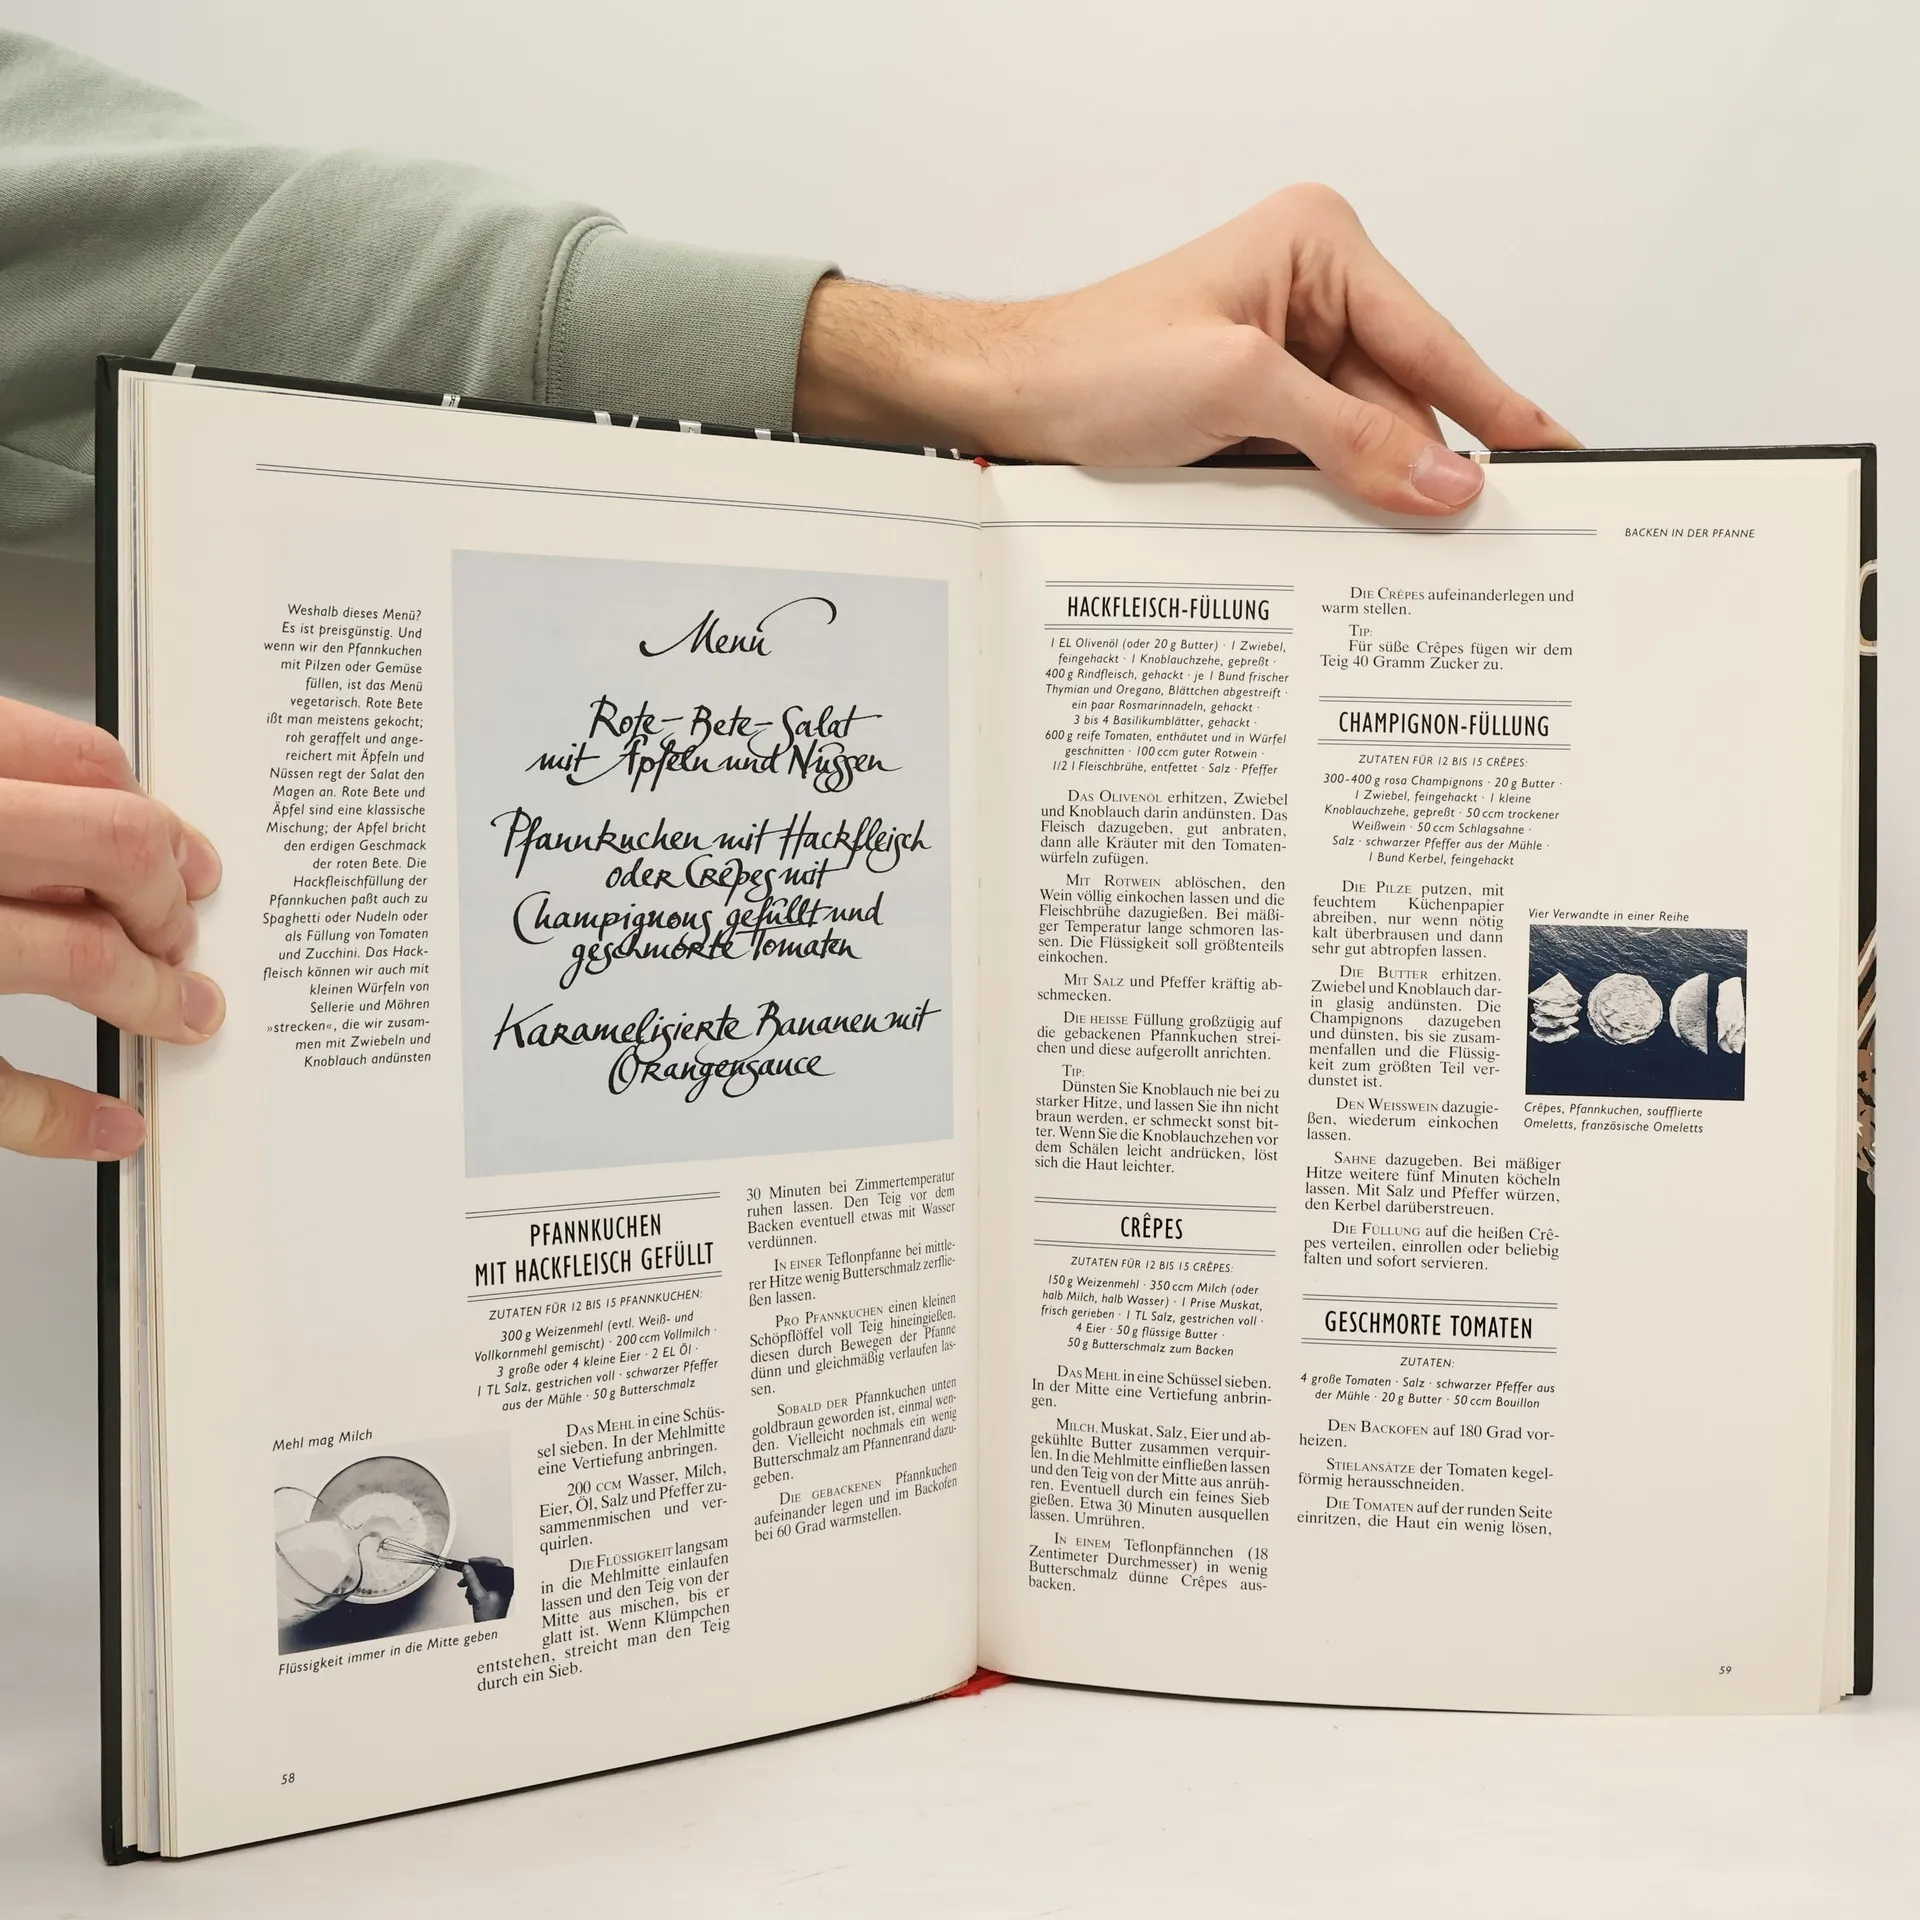 Weshalb dieses Menü?
Es ist preisgünstig. Und
wenn wir den Pfannkuchen
mit Pilzen oder Gemüse
füllen, ist das Menü
vegetarisch. Rote Bete
ißt man meistens gekocht;
roh geraffelt und ange-
reichert mit Äpfeln und
Nüssen regt der Salat den
Magen an. Rote Bete und
Äpfel sind eine klassische
Mischung; der Apfel bricht
den erdigen Geschmack
der roten Bete. Die
Hackfleischfüllung der
Pfannkuchen paßt auch zu
Spaghetti oder Nudeln oder
als Füllung von Tomaten
und Zucchini. Das Hack-
fleisch können wir auch mit
kleinen Würfeln von
Sellerie und Möhren
»strecken«, die wir zusam-
men mit Zwiebeln und
Knoblauch andünsten
Menü
Rote-Bete-Salat
mit Äpfeln und Nüssen
Pfannkuchen mit Hackfleisch
oder Crêpes mit
Champignons gefüllt und
geschmorte Tomaten
Karamelisierte Bananen mit
Orangensauce
PFANNKUCHEN
MIT HACKFLEISCH GEFÜLLT
ZUTATEN FÜR 12 BIS 15 PFANNKUCHEN:
300 g Weizenmehl (evtl. Weiß- und
Vollkornmehl gemischt) · 200 ccm Vollmilch ·
3 große oder 4 kleine Eier · 2 EL Öl ·
1 TL Salz, gestrichen voll · schwarzer Pfeffer
aus der Mühle · 50 g Butterschmalz
Mehl mag Milch
Flüssigkeit immer in die Mitte geben
DAS MEHL in eine Schüs-
sel sieben. In der Mehlmitte
eine Vertiefung anbringen.
200 CCM Wasser, Milch,
Eier, Öl, Salz und Pfeffer zu-
sammenmischen und ver-
quirlen.
DIE FLÜSSIGKEIT langsam
in die Mehlmitte einlaufen
lassen und den Teig von der
Mitte aus mischen, bis er
glatt ist. Wenn Klümpchen
entstehen, streicht man den Teig
durch ein Sieb.
30 Minuten bei Zimmertemperatur
ruhen lassen. Den Teig vor dem
Backen eventuell etwas mit Wasser
verdünnen.
IN EINER Teflonpfanne bei mittle-
rer Hitze wenig Butterschmalz zerflie-
ßen lassen.
PRO PFANNKUCHEN einen kleinen
Schöpflöffel voll Teig hineingießen,
diesen durch Bewegen der Pfanne
dünn und gleichmäßig verlaufen las-
sen.
SOBALD DER Pfannkuchen unten
goldbraun geworden ist, einmal wen-
den. Vielleicht nochmals ein wenig
Butterschmalz am Pfannenrand dazu-
geben.
DIE GEBACKENEN Pfannkuchen
aufeinander legen und im Backofen
bei 60 Grad warmstellen.
58
BACKEN IN DER PFANNE
HACKFLEISCH-FÜLLUNG
1 EL Olivenöl (oder 20 g Butter) · 1 Zwiebel,
feingehackt · 1 Knoblauchzehe, gepreßt ·
400 g Rindfleisch, gehackt · je 1 Bund frischer
Thymian und Oregano, Blättchen abgestreift ·
ein paar Rosmarinnadeln, gehackt ·
3 bis 4 Basilikumblätter, gehackt ·
600 g reife Tomaten, enthäutet und in Würfel
geschnitten · 100 ccm guter Rotwein ·
1/2 l Fleischbrühe, entfettet · Salz · Pfeffer
DAS OLIVENÖL erhitzen, Zwiebel
und Knoblauch darin andünsten. Das
Fleisch dazugeben, gut anbraten,
dann alle Kräuter mit den Tomaten-
würfeln zufügen.
MIT ROTWEIN ablöschen, den
Wein völlig einkochen lassen und die
Fleischbrühe dazugießen. Bei mäßi-
ger Temperatur lange schmoren las-
sen. Die Flüssigkeit soll größtenteils
einkochen.
MIT SALZ und Pfeffer kräftig ab-
schmecken.
DIE HEISSE Füllung großzügig auf
die gebackenen Pfannkuchen strei-
chen und diese aufgerollt anrichten.
TIP:
Dünsten Sie Knoblauch nie bei zu
starker Hitze, und lassen Sie ihn nicht
braun werden, er schmeckt sonst bit-
ter. Wenn Sie die Knoblauchzehen vor
dem Schälen leicht andrücken, löst
sich die Haut leichter.
CRÊPES
ZUTATEN FÜR 12 BIS 15 CRÊPES:
150 g Weizenmehl · 350 ccm Milch (oder
halb Milch, halb Wasser) · 1 Prise Muskat,
frisch gerieben · 1 TL Salz, gestrichen voll ·
4 Eier · 50 g flüssige Butter ·
50 g Butterschmalz zum Backen
DAS MEHL in eine Schüssel sieben.
In der Mitte eine Vertiefung anbrin-
gen.
MILCH, Muskat, Salz, Eier und ab-
gekühlte Butter zusammen verquir-
len. In die Mehlmitte einfließen lassen
und den Teig von der Mitte aus anrüh-
ren. Eventuell durch ein feines Sieb
gießen. Etwa 30 Minuten ausquellen
lassen. Umrühren.
IN EINEM Teflonpfännchen (18
Zentimeter Durchmesser) in wenig
Butterschmalz dünne Crêpes aus-
backen.
DIE CRÊPES aufeinanderlegen und
warm stellen.
TIP:
Für süße Crêpes fügen wir dem
Teig 40 Gramm Zucker zu.
CHAMPIGNON-FÜLLUNG
ZUTATEN FÜR 12 BIS 15 CRÊPES:
300-400 g rosa Champignons · 20 g Butter ·
1 Zwiebel, feingehackt · 1 kleine
Knoblauchzehe, gepreßt · 50 ccm trockener
Weißwein · 50 ccm Schlagsahne ·
Salz · schwarzer Pfeffer aus der Mühle ·
1 Bund Kerbel, feingehackt
DIE PILZE putzen, mit
feuchtem Küchenpapier
abreiben, nur wenn nötig
kalt überbrausen und dann
sehr gut abtropfen lassen.
DIE BUTTER erhitzen.
Zwiebel und Knoblauch dar-
in glasig andünsten. Die
Champignons dazugeben
und dünsten, bis sie zusam-
menfallen und die Flüssig-
keit zum größten Teil ver-
dunstet ist.
DEN WEISSWEIN dazugie-
ßen, wiederum einkochen
lassen.
SAHNE dazugeben. Bei mäßiger
Hitze weitere fünf Minuten köcheln
lassen. Mit Salz und Pfeffer würzen,
den Kerbel darüberstreuen.
DIE FÜLLUNG auf die heißen Crê-
pes verteilen, einrollen oder beliebig
falten und sofort servieren.
Vier Verwandte in einer Reihe
Crêpes, Pfannkuchen, soufflierte
Omeletts, französische Omeletts
GESCHMORTE TOMATEN
ZUTATEN:
4 große Tomaten · Salz · schwarzer Pfeffer aus
der Mühle · 20 g Butter · 50 ccm Bouillon
DEN BACKOFEN auf 180 Grad vor-
heizen.
STIELANSÄTZE der Tomaten kegel-
förmig herausschneiden.
DIE TOMATEN auf der runden Seite
einritzen, die Haut ein wenig lösen,
59